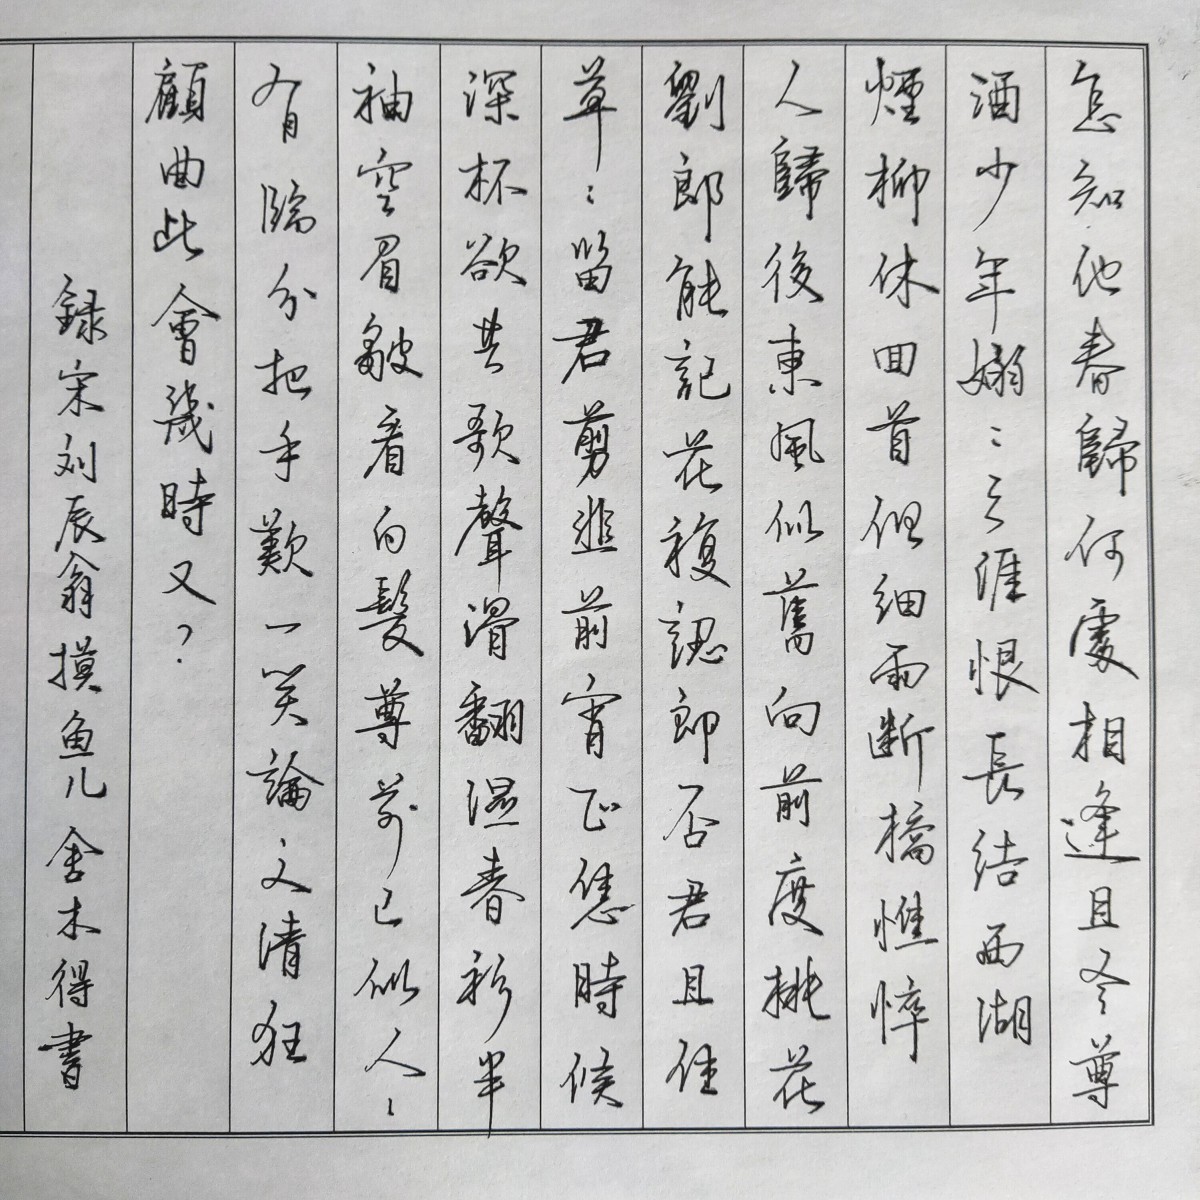 怎知他春歸何處相逢且尽尊
酒少年嫋：天涯恨長結西湖
煙柳休回首但細雨断橋憔悴
人歸後東風似舊向前度桃花
劉郎能記花複認郎否君且住
草：留君剪韭前宵正恁時候
深杯欲共歌聲滑翻湿春衫半
袖空眉皺看白髮尊前已似人：
有臨分把手歎一笑論文清狂
顧曲此會幾時又？
録宋刘辰翁摸鱼儿 舍木得書